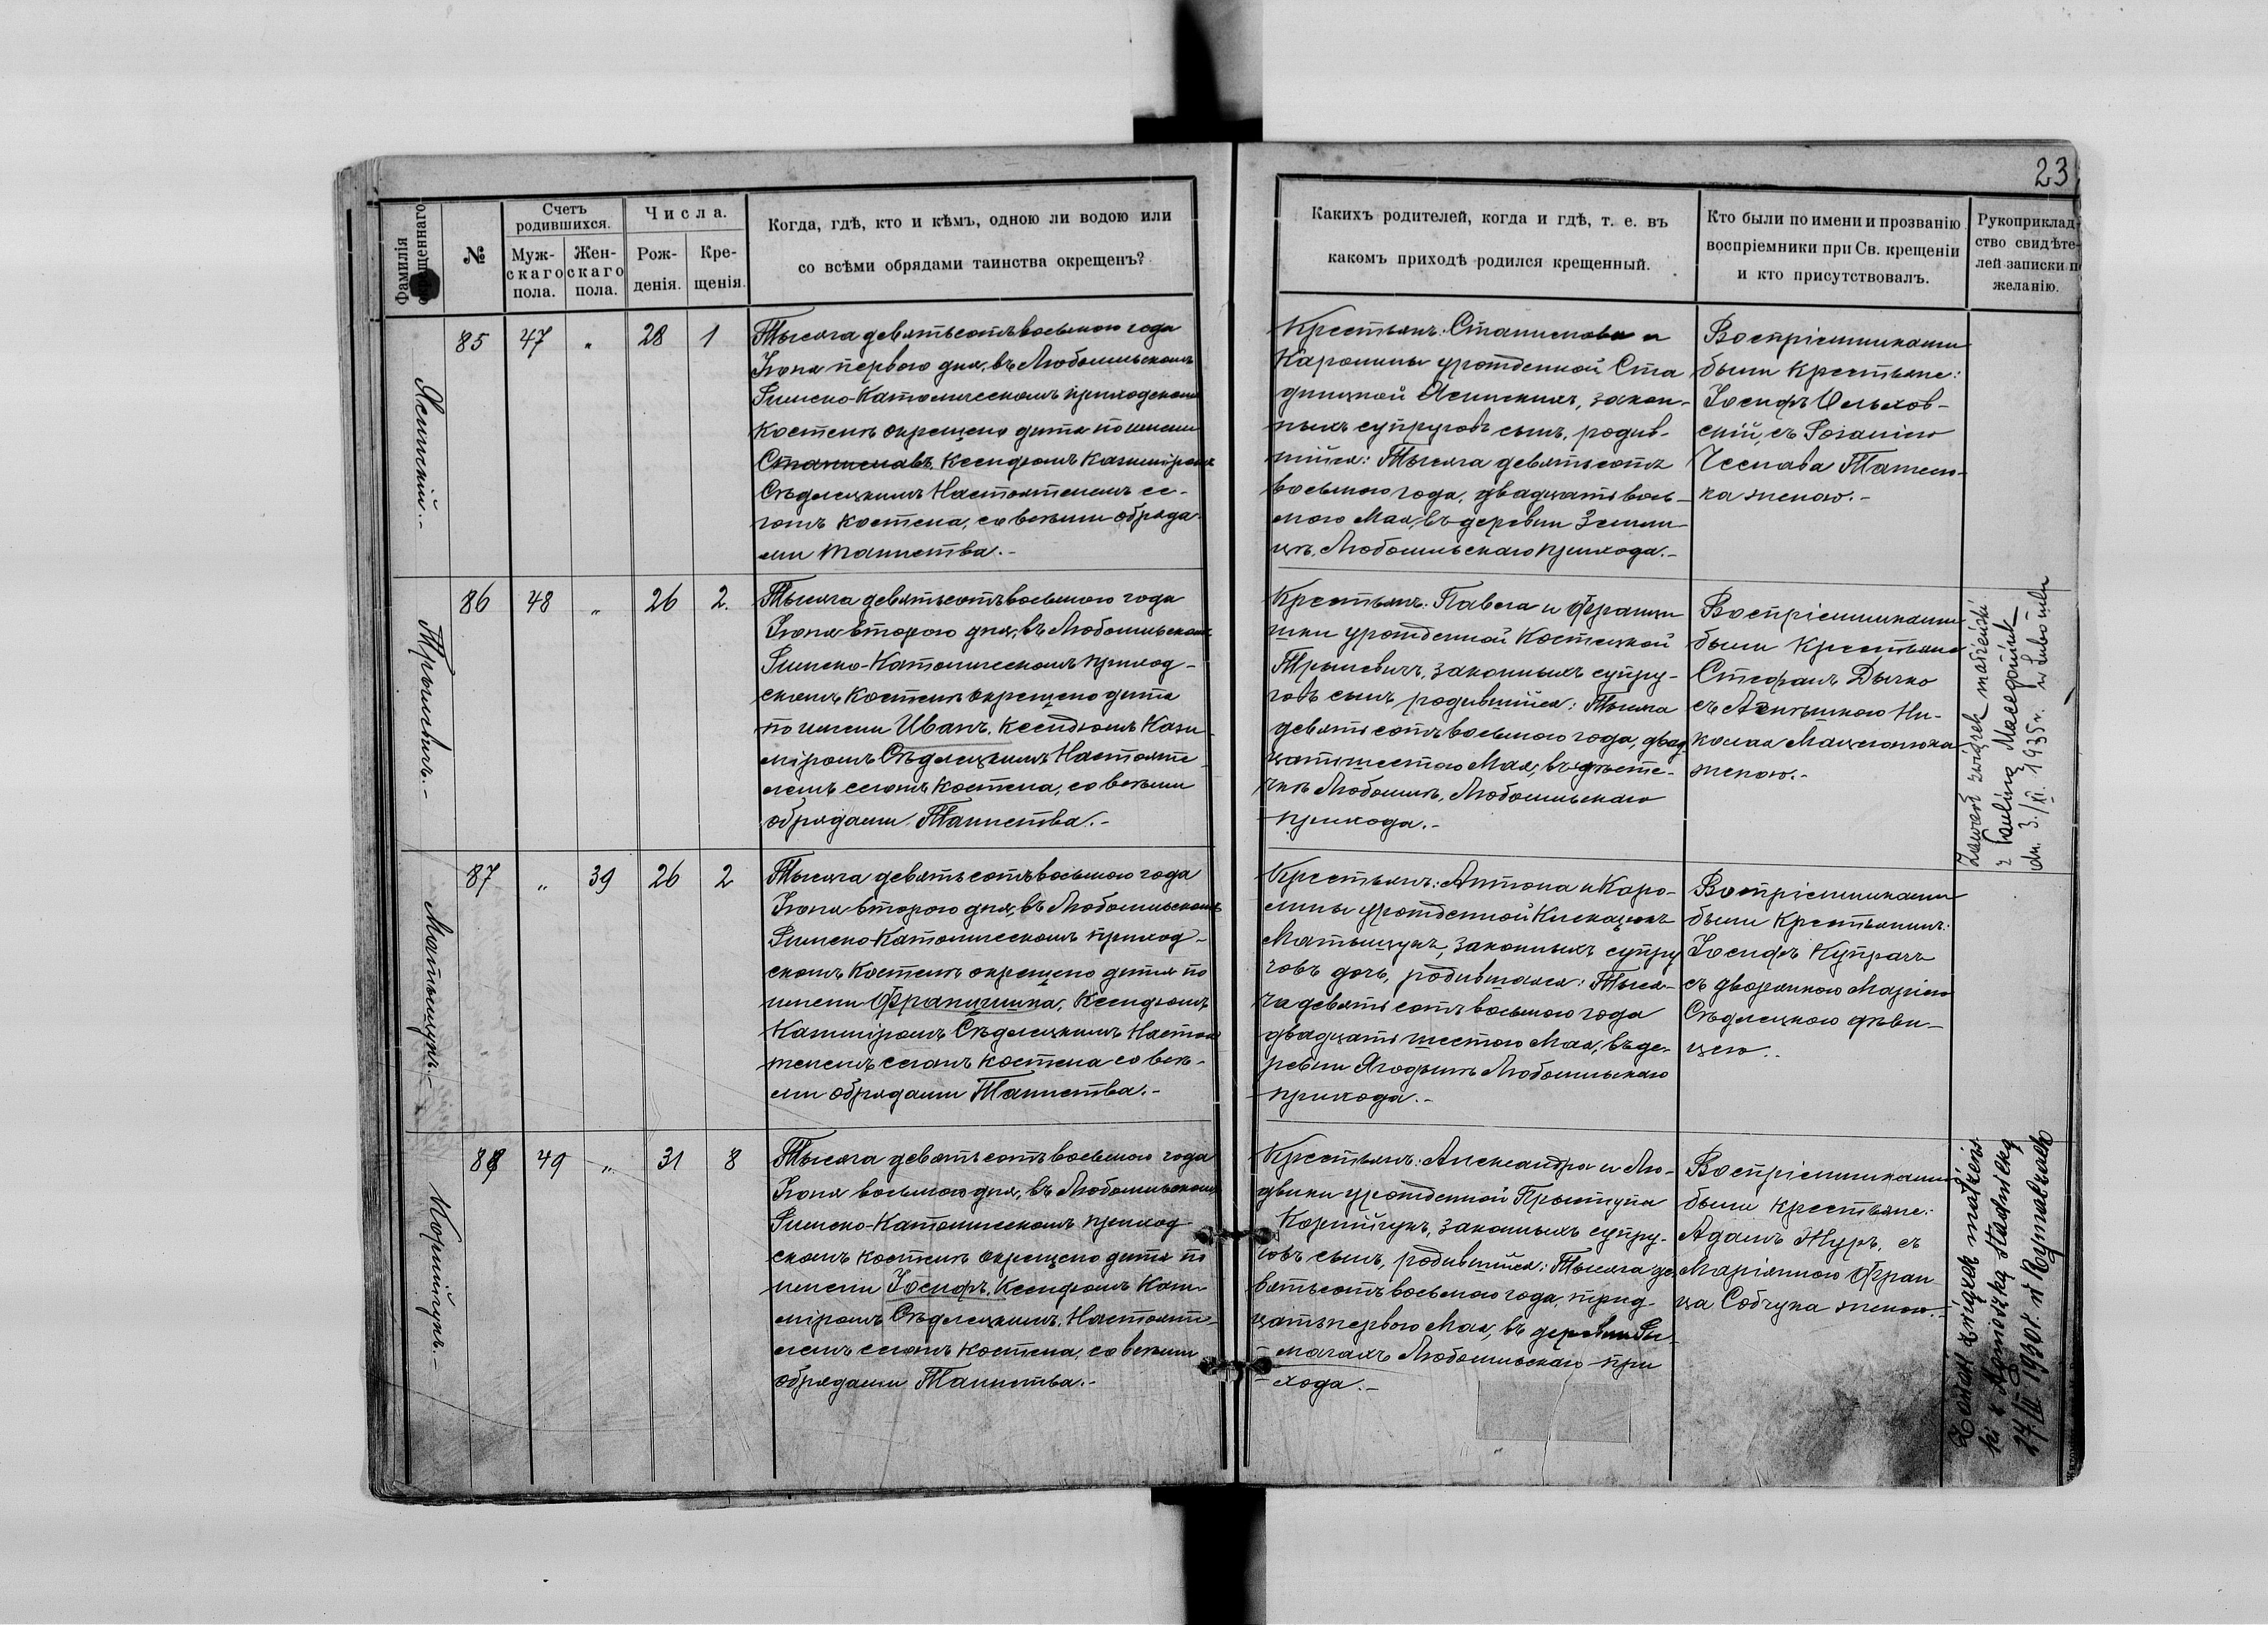 23
Фамилія
окрещеннаго
№
Счетъ
родившихся.
Муж-
скаго
пола.
Жен-
скаго
пола.
Числа.
Рож-
денія.
Кре-
щенія.
Когда, гдѣ, кто и кѣмъ, одною ли водою или
со всѣми обрядами таинства окрещенъ?
Какихъ родителей, когда и гдѣ, т. е. въ
какомъ приходѣ родился крещенный.
Кто были по имени и прозванію
воспріемники при Св. крещеніи
и кто присутствовалъ.
Рукоприклад-
ство свидѣте-
лей записки п
желанію.
Ясинскій.-
85 47 „ 28 1
Тысяча девятьсотъ восьмого года
Іюня перваго дня, въ Любомльскомъ
Римско-Католическомъ приходскомъ
костелѣ окрещено дитя по имени
Станиславъ, Ксендзомъ Казиміромъ
Сѣдлецкимъ Настоятелемъ се-
гожъ костела, со всѣми обряда-
ми таинства.-
Крестьянъ: Станислава и
Каролины урожденной Ста
дницкой Ясинскихъ, закон-
ныхъ супруговъ сынъ, родив-
шійся: Тысяча девятьсотъ
восьмого года, двадцать вось-
мого Мая, въ деревни Земли-
цѣ, Любомльскаго прихода.-
Воспріемниками
были крестьяне:
Іосифъ Ольхов-
скій, съ Розаліею
Чеслава
женою.-
86 48 „ 26 2.
Тысяча девятьсотъ восьмого года
Іюня второго дня, въ Любомльскомъ
Римско-Католическомъ приход-
скомъ костелѣ окрещено дитя
по имени Иванъ, Ксендзомъ Кази-
міромъ Сѣдлецкимъ Настояте-
лемъ сегожъ костела, со всѣми
обрядами Таинства.-
Крестьянъ: Павла и Францы
шки урожденной Костецкой
законныхъ супру-
говъ сынъ, родившійся: Тысяча
девятьсотъ восьмого года, двад-
цать шестого Мая, въ мѣсте-
чкѣ Любомлѣ, Любомльскаго
прихода.-
Воспріемниками
были Крестьяне
Стефанъ Дычко
съ Агнѣшкою Ни-
колая Мацегонюка
женою.-
Zawarł związek małżeński
z Pauliną Macegoniuk
dn. 3./XI. 1935 r. w Lubomlu
Матыщукъ.-
87 „ 39 26 2
Тысяча девятьсотъ восьмого года
Іюня второго дня, въ Любомльскомъ
Римско-Католическомъ приход-
скомъ костелѣ окрещено дитя по
имени Францишка, Ксендзомъ
Казиміромъ Сѣдлецкимъ Настоя
телемъ сегожъ костела со всѣ-
ми обрядами Таинства.-
Крестьянъ: Антона и Каро-
лины урожденной
Матыщукъ, законныхъ супру
говъ дочь, родившаяся: Тыся-
ча девятьсотъ восьмого года
двадцать шестого Мая, въ де-
ревни Ягодынѣ Любомльскаго
прихода.-
Воспріемниками
были Крестьянинъ:
Іосифъ Купрачъ
съ дворянкою Маріею
Сѣдлецкою дѣви-
цею.-
Корнійчукъ.-
88 49 „ 31 8
Тысяча девятьсотъ восьмого года
Іюня восьмого дня, въ Любомльскомъ
Римско-Католическомъ приход
скомъ костелѣ окрещено дитя по
имени Іосифъ, Ксендзомъ Кази
міромъ Сѣдлецкимъ, Настояте-
лемъ сегожъ костела, со всѣми
обрядами Таинства.-
Крестьянъ: Александра и Лю-
двики урожденной Прыступа
Корнійчукъ, законныхъ супру-
говъ сынъ, родившійся: Тысяча де
вятьсотъ восьмого года, трид-
цать перваго Мая, въ деревни Ры-
мачахъ Любомльскаго при
хода.-
Воспріемниками
были крестьяне:
Адамъ Журъ, съ
Маріянною Фран
ца Собчука женою.-
Zawarł związek małżeńs
ki z Agnieszką Stadnicką
27/II 1930 r. w Rymaczach